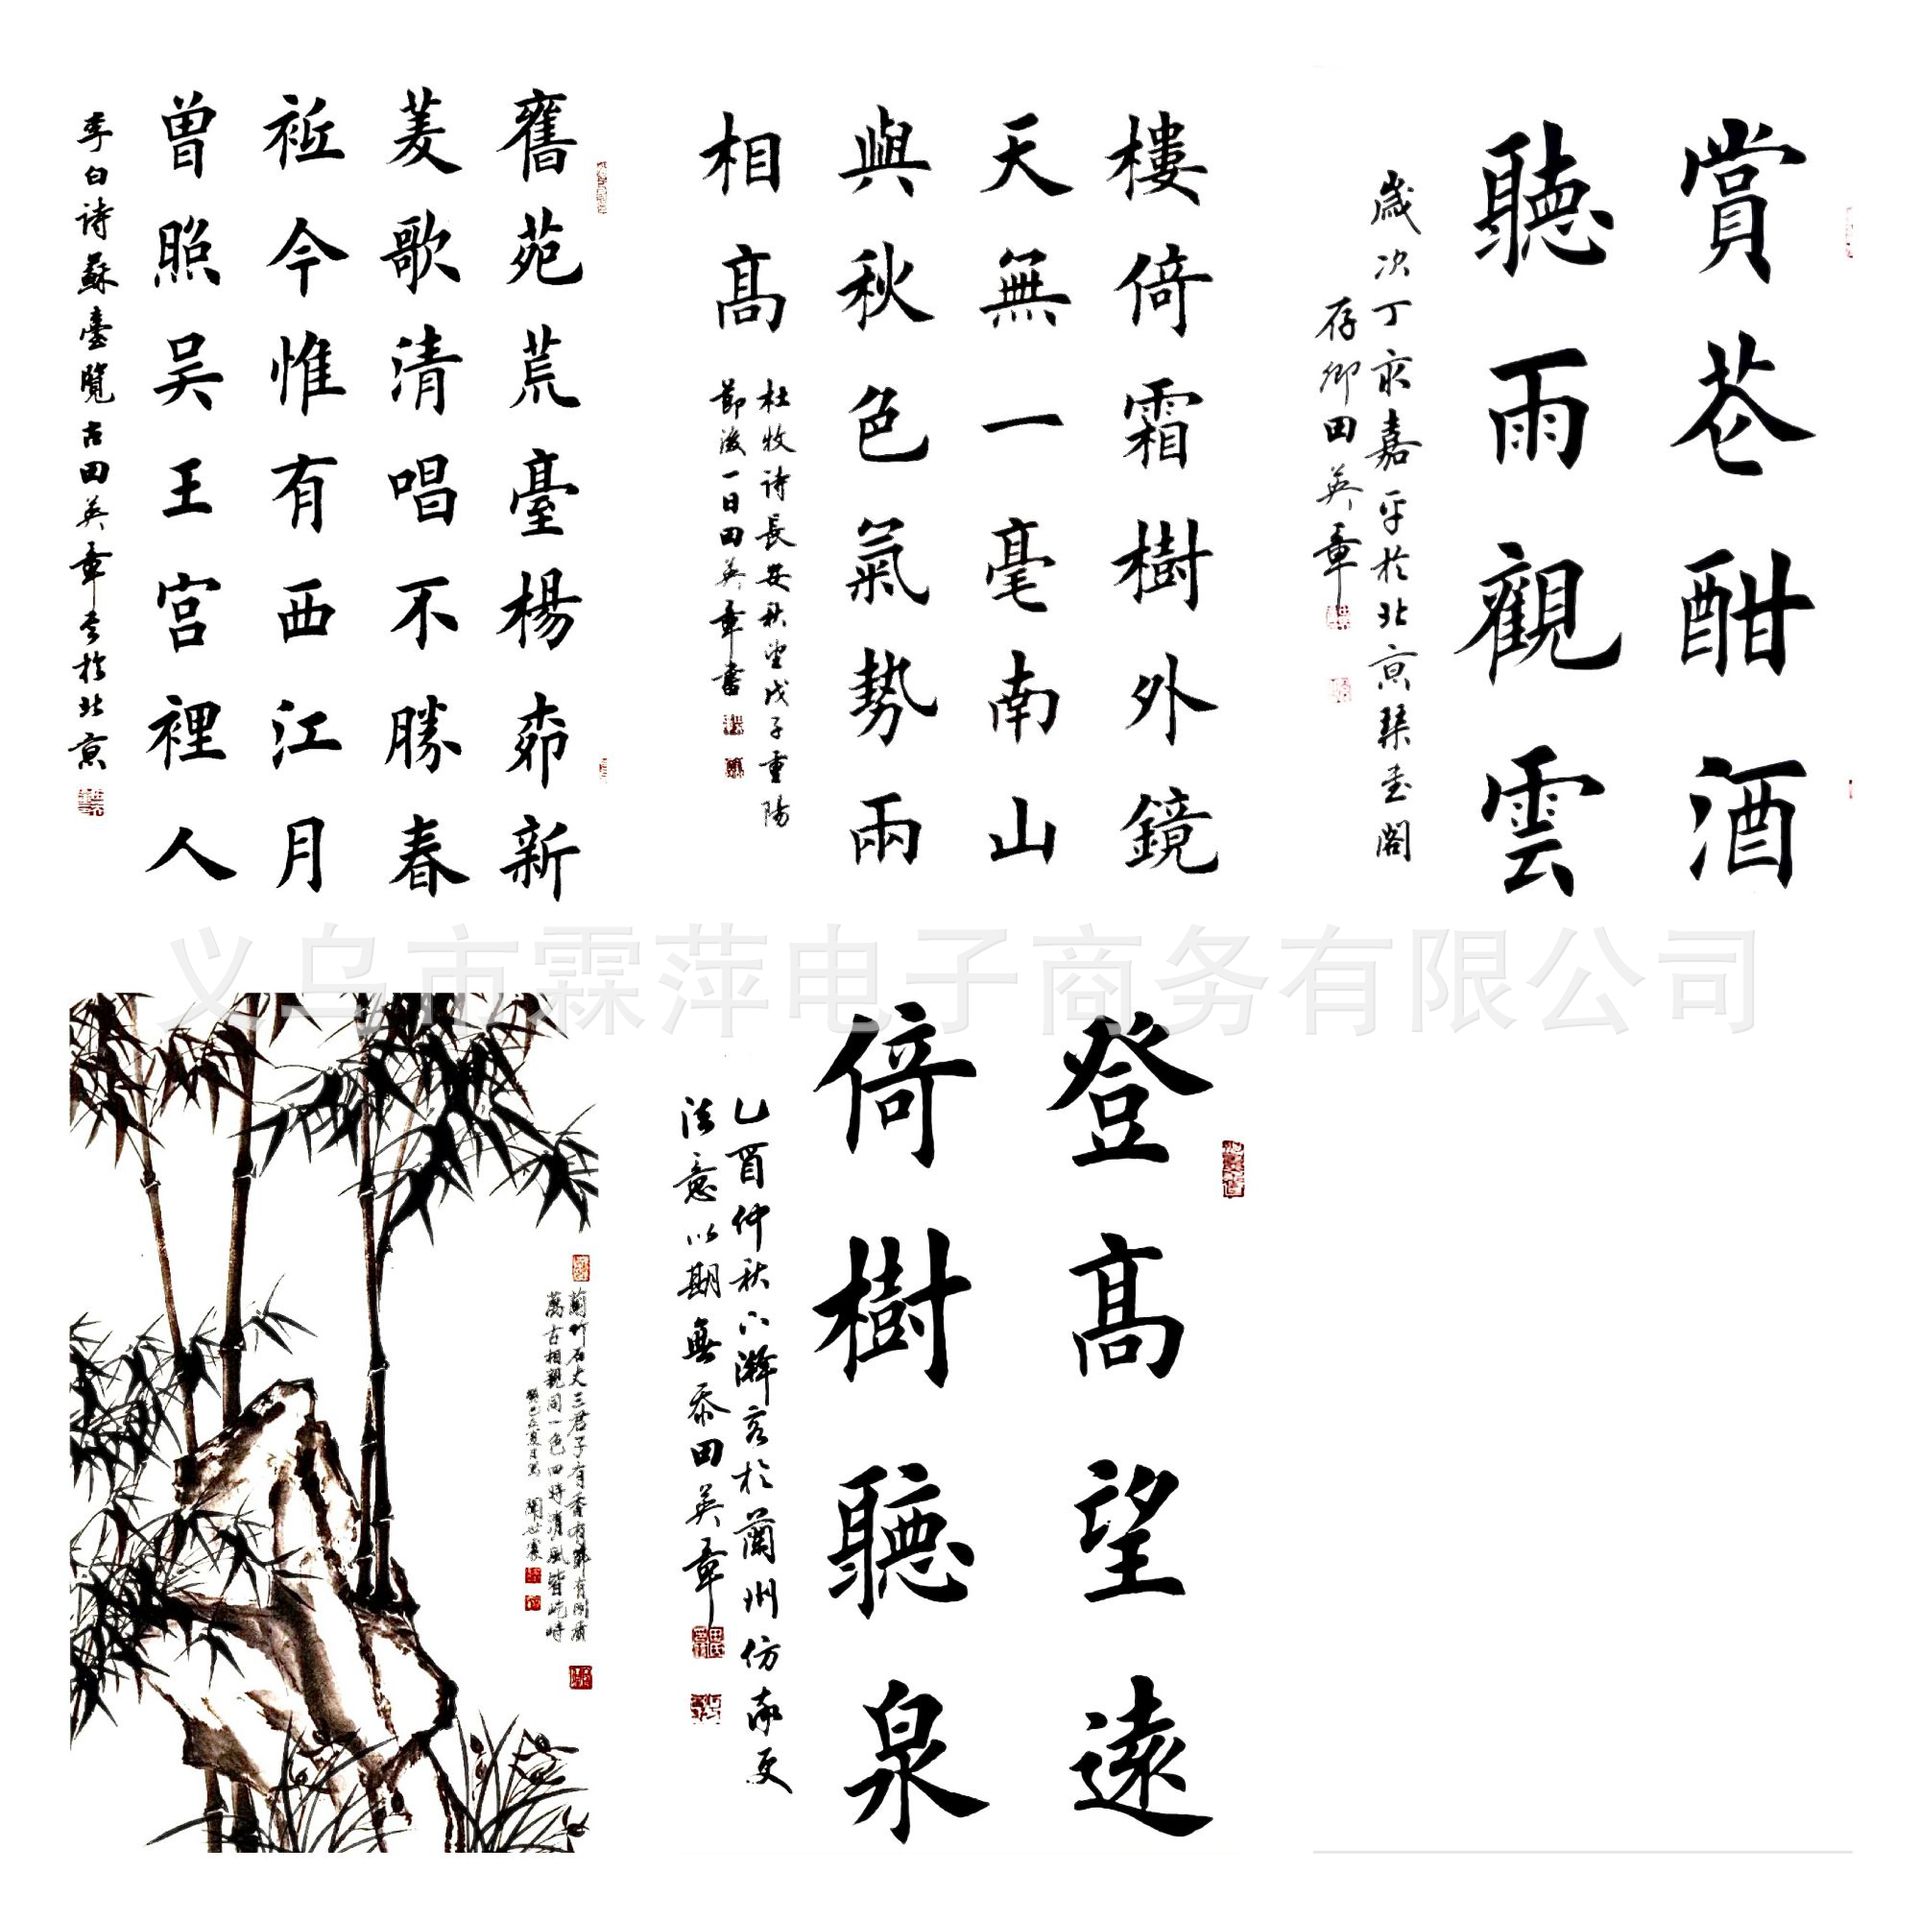 舊苑荒臺楊桺新
菱歌清唱不勝春
祗今惟有西江月
曾照吴王宫裡人
李白诗蘇臺覽古田英章书於北京
樓倚霜樹外鏡
天無一毫南山
與秋色氣勢兩
相高
杜牧诗長安秋望戊子重陽
節後一日田英章書
賞花酣酒
聽雨觀雲
歲次丁亥嘉平於北京琹書閣
存卿田英章
义乌市霖萍电子商务有限公司
蘭竹石丈三君子有香有節有
萬古相親同一色四時清風皆屹峙
登高望遠
倚樹聽泉
乙酉仲秋下澣客於蘭州仿率更
法意以期無忝田英章